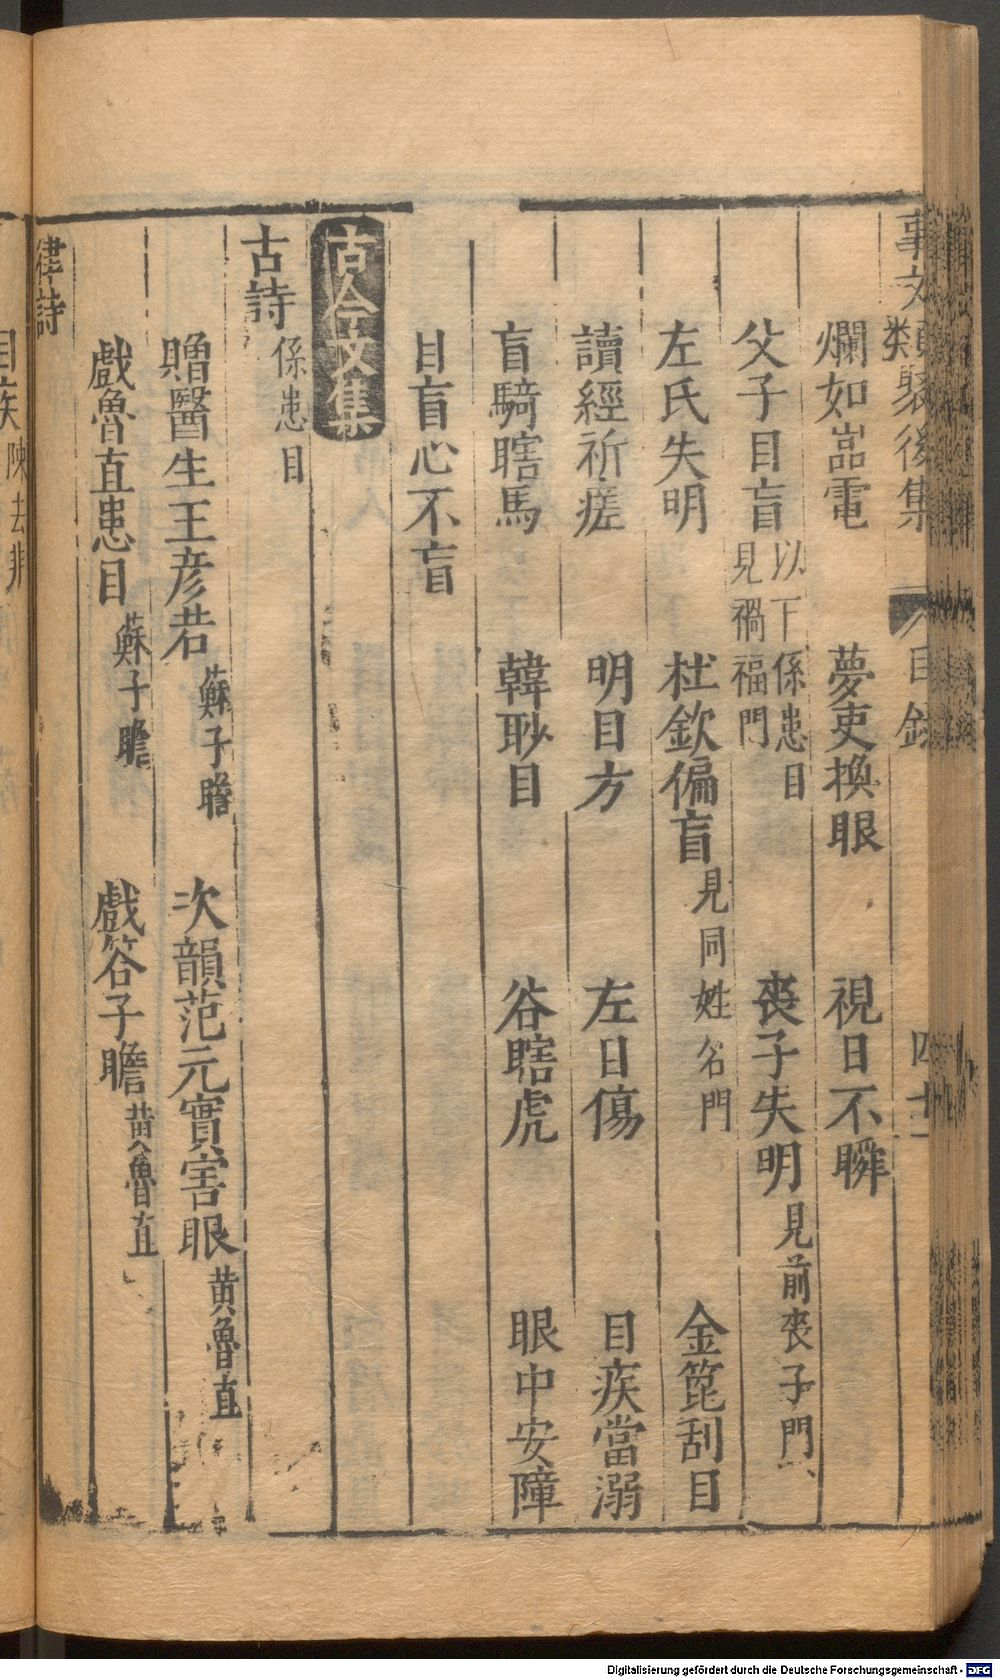 事文類聚後集 目錄 四十一
爛如嵓電 夢吏換眼 視日不瞬
父子目盲 以下係患目 見禍福門 喪子失明 見前喪子門
左氏失明 杜欽偏盲 見同姓名門 金篦刮目
讀經祈瘥 明目方 左目傷 目疾當溺
盲騎瞎馬 韓眇目 谷瞎虎 眼中安障
目盲心不盲
古今文集
古詩 係患目
贈醫生王彦若 蘇子瞻 次韻范元實害眼 黄魯直
戲魯直患目 蘇子瞻 戲答子瞻 黄魯直
律詩
目疾 陳去非
Digitalisierung gefördert durch die Deutsche Forschungsgemeinschaft - DFG